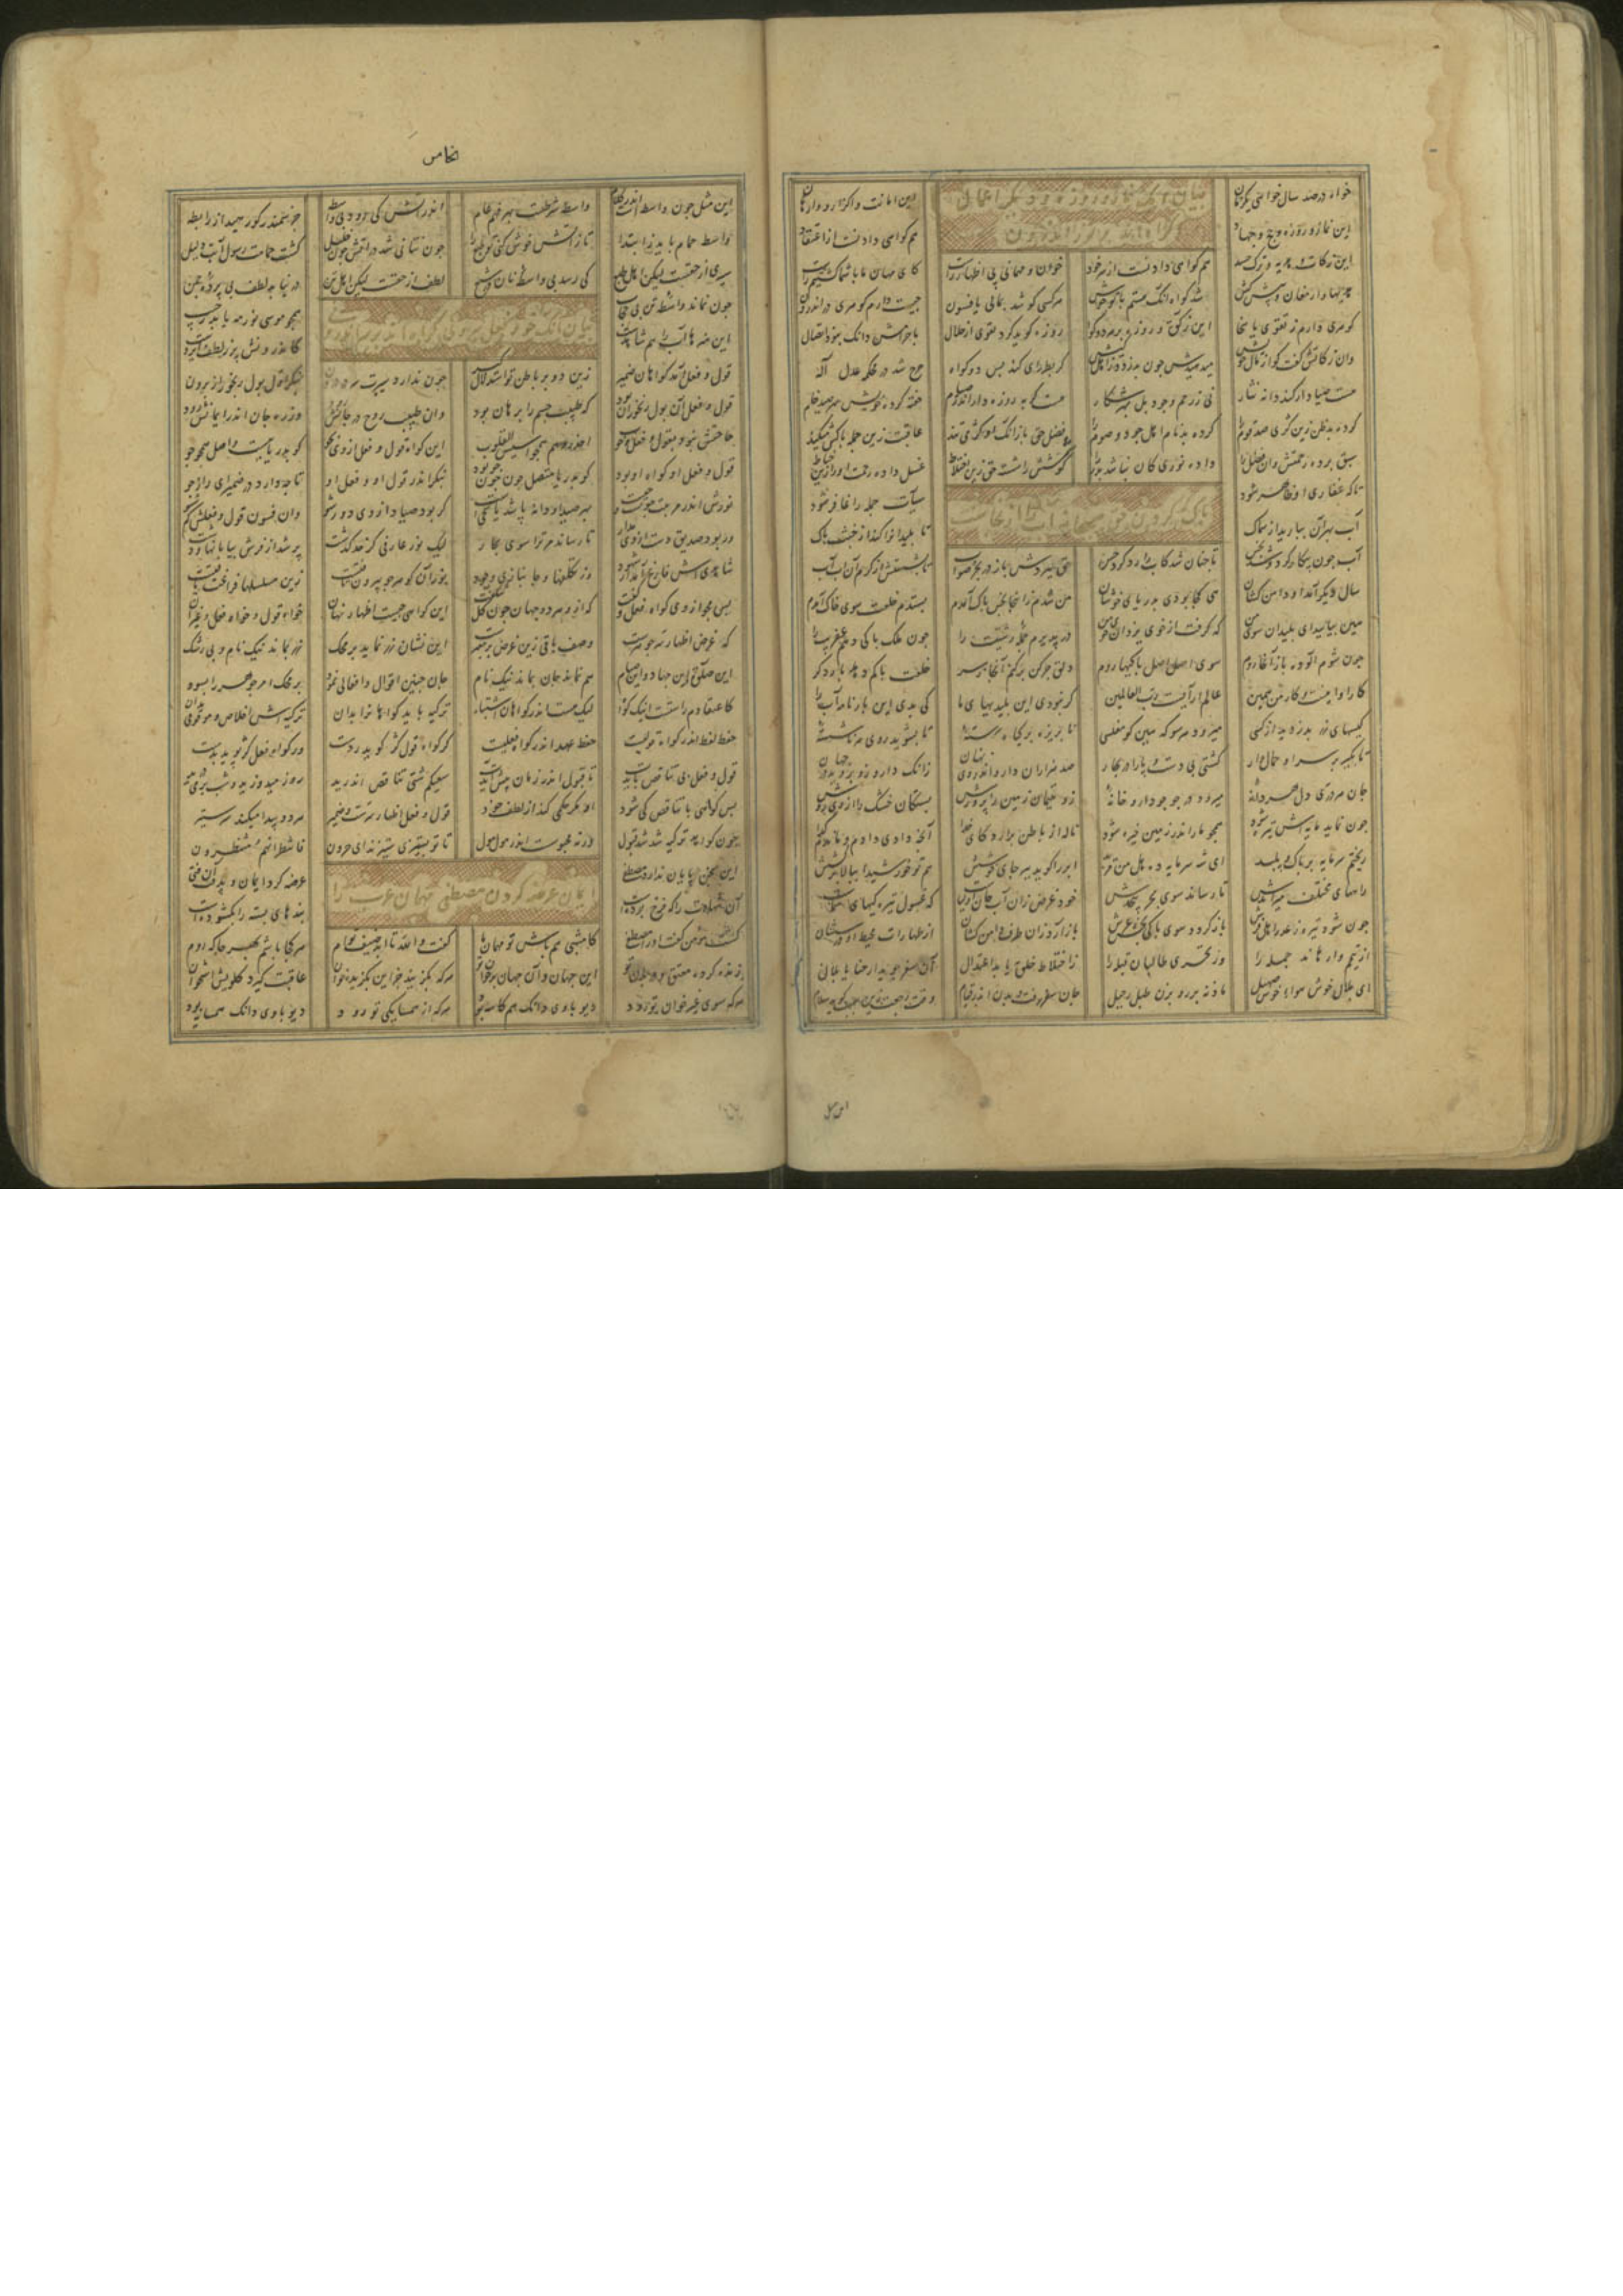 خواه در صد سال خواهی یک زمان
این امانت واگزار و وارهان
بیان آنک نماز و روزه و دیگر اعمال
این نماز و روزه و حج و جهاد
هم گواهی دادنست از اعتقاد
این زکات و هدیه و ترک حسد
هم گواهی دادنست از سر خود
خوان و مهمانی پی اظهار راست
کای مهان ما با شما گشتیم راست
هدیها و ارمغان و پیش کش
شد گواه آنک هستم با تو خوش
هر کسی کوشد بمالی یا فسون
چیست دارم گوهری در اندرون
گوهری دارم ز تقوی یا سخا
این زکوة و روزه بر هر دو گوا
روزه گوید کرد تقوی از حلال
با حرامش دانک نبود اتصال
وان زکاتش گفت کو از مال خویش
میدهد پس چون بدزدد ز اهل کیش
گر بطراری کند پس دو گواه
جرح شد در محکمه عدل اله
هست صیاد ار کند دانه نثار
نی ز رحم و جود بل بهر شکار
هست گربه روزه دار اندر صیام
خفته کرده خویش بهر صید خام
کرده بدظن زین کژی صد قوم را
کرده بدنام اهل جود و صوم را
فضل حق با آنک او کژ می تند
عاقبت زین جمله پاکش میکند
سبق برده رحمتش وان غدر را
داده نوری کان نباشد بدر را
کوشش را شست حق زین اختلاط
غسل داده رحمت او را زین خباط
تا که غفاری او ظاهر شود
سیآت جمله را غافر شود
پاک کردن حق سبحانه آب را از نجاست
آب بهر آن ببارید از سماک
تا پلیدانرا کند از خبث پاک
آب چون پیکار کرد و شد نجس
تا چنان شد کاب را رد کرد حس
حق ببردش باز در بحر صواب
تا بشستش از کرم آن آب آب
سال دیگر آمد او دامن کشان
هی کجا بودی بدریای خوشان
من نجس زینجا شدم پاک آمدم
بستدم خلعت سوی خاک آمدم
هین بیایید ای پلیدان سوی من
که گرفت از خوی یزدان خوی من
در پذیرم جمله زشتیت را
چون ملک پاکی دهم عفریت را
چون شوم آلوده باز آنجا روم
سوی اصل اصل پاکیها روم
دلق چرکن بر کنم آنجا ز سر
خلعت پاکم دهد بار دگر
کار او اینست و کار من همین
عالم آرایست رب العالمین
گر نبودی این پلیدیهای ما
کی بدی این بارنامه آب را
کیسهای زر بدزدید از کسی
میرود هر سو که هین کو مفلسی
تا بریزد بر گیاه رسته
تا بشوید روی هر ناشسته
تا بگیرد بر سر او حمال وار
کشتی بی دست و پا را در بحار
صد هزاران دارو اندر وی نهان
زانک دارو زو بروید در جهان
جان هر دری دل هر دانه
میرود در جو چو دارو خانه
زو یتیمان زمین را پرورش
بستگان خشک را از وی روش
چون نماند مایه اش تیره شود
همچو ما اندر زمین خیره شود
ناله از باطن برآرد کای خدا
آنچ دادی دادم و ماندم گدا
ریختم سرمایه بر پاک و پلید
ای شه سرمایه ده هل من مزید
ابر را گوید ببر جای خوشش
هم تو خورشیدا ببالا برکشش
راههای مختلف میراندش
تا رساند سوی بحر بی حدش
خود غرض زان آب جان اولیاست
کو غسول تیرگیهای شماست
چون شود تیره ز غدر اهل فرش
باز گردد سوی پاکی بخش عرش
باز آرد زان طرف دامن کشان
از طهارات محیط او درسشان
از تیمم وا رهاند جمله را
وز تحری طالبان قبله را
ز اختلاط خلق یابد اعتدال
آن سفر جوید ارحنا یا بلال
ای بلال خوش نوای خوش صهیل
مأذنه بر رو بزن طبل رحیل
جان سفر رفت و بدن اندر قیام
وقت رجعت زین سبب گوید سلام
الخامس
این مثل چون واسطه است اندر کلام
واسطه شرطست بهر فهم عام
اندر آتش کی رود بی واسطه
جز سمندر کو رهید از رابطه
واسطه حمام باید ز ابتدا
تا ز آتش خوش کنی تو طبع را
چون نتانی شد در آتش چون خلیل
گشت حمامت رسول آبت دلیل
سیری از حقست لیکن اهل طبع
کی رسد بی واسطه نان در شبع
لطف از حقست لیکن اهل تن
در نیابد لطف بی پرده چمن
چون نماند واسطه تن بی حجاب
همچو موسی نور مه یابد ز جیب
این هنرها آب را هم شاهدست
کاندرونش پر ز لطف ایزدست
قول و فعل آمد گواهان ضمیر
زین دو بر باطن تو استدلال گیر
چون ندارد سیر سرت در درون
بنگر اندر بول رنجور از برون
قول و فعل آن بول رنجوران بود
که طبیب جسم را برهان بود
وان طبیب روح در جانش رود
وز ره جان اندر ایمانش رود
حاجتش نبود بقول و فعل خوب
احذروهم هم جواسیس القلوب
این گواه قول و فعل از وی بجو
کو بدریا نیست واصل همچو جو
قول و فعل او گواه او بود
کو بدریا متصل چون جو بود
بنگر اندر قول او و فعل او
تا چه دارد در ضمیر آن راز جو
بهر صید او دانه پاشد یا سخی
گر بود صیاد از وی دور شو
وان فسون قول و فعلش کم شنو
ور بود صدیق دست از وی مدار
تا رساند مر ترا سوی بحار
لیک نور عارفی کز حد گذشت
پر شد از نورش بیابانها و دشت
شاهدی اش فارغ آمد از شهود
وز تکلفها و جانبازی و جود
نور آن گوهر چو بیرون تافتست
زین تسلسها فراغت یافتست
پس مجو از وی گواه فعل و گفت
که ازو هر دو جهان چون گل شکفت
این گواهی چیست اظهار نهان
خواه قول و خواه فعل و غیر آن
که غرض اظهار سر جوهرست
وصف باقی زین غرض بر معبرست
این نشان زر نماند بر محک
زر بماند نیک نام و بی ز شک
این صلوة و این جهاد و این صیام
هم نماند جان بماند نیک نام
جان چنین افعال و اقوالی نمود
بر محک امر جوهر را بسود
کاعتقادم راستست اینک گواه
لیک هست اندر گواهان اشتباه
تزکیه باید گواهانرا بدان
تزکیه اش اخلاص و موقوفی بدان
حفظ لفظ اندر گواه قولیست
حفظ عهد اندر گواه فعلیست
گر گواه قول کژ گوید ردست
ور گواه فعل کژ پوید بدست
قول و فعل بی تناقض بایدت
تا قبول اندر زمان پیش آیدت
سعیکم شتی تناقض اندرید
روز میدوزید و شب بر می درید
پس گواهی با تناقض کی شود
او مگر حکمی کند از لطف خود
قول و فعل اظهار سرست و ضمیر
هر دو پیدا میکند سر ستیر
چون گواهت تزکیه شد شد قبول
ورنه محبوست اندر مول مول
تا تو بستیزی ستیزند ای حرون
فانتظرهم انهم منتظرون
ایمان عرضه کردن مصطفی مهمان عرب را
این سخن پایان ندارد مصطفی
عرضه کرد ایمان و پذرفت آن فتی
آن شهادت را که فرخ بوده است
بندهای بسته را بگشوده است
گشت مؤمن گفت او را مصطفی
کامشب هم باش تو مهمان ما
گفت والله تا ابد ضیف توام
هر کجا باشم بهر جا که روم
زنده کرده معتق و دربان تو
این جهان و آن جهان بر خوان تو
هر که بگزیند جز این بگزیده خوان
عاقبت گیرد گلویش استخوان
هر که سوی غیر خوان تو رود
دیو با وی دانک هم کاسه بود
هر که از همسایگی تو رود
دیو با وی دانک همسایه بود